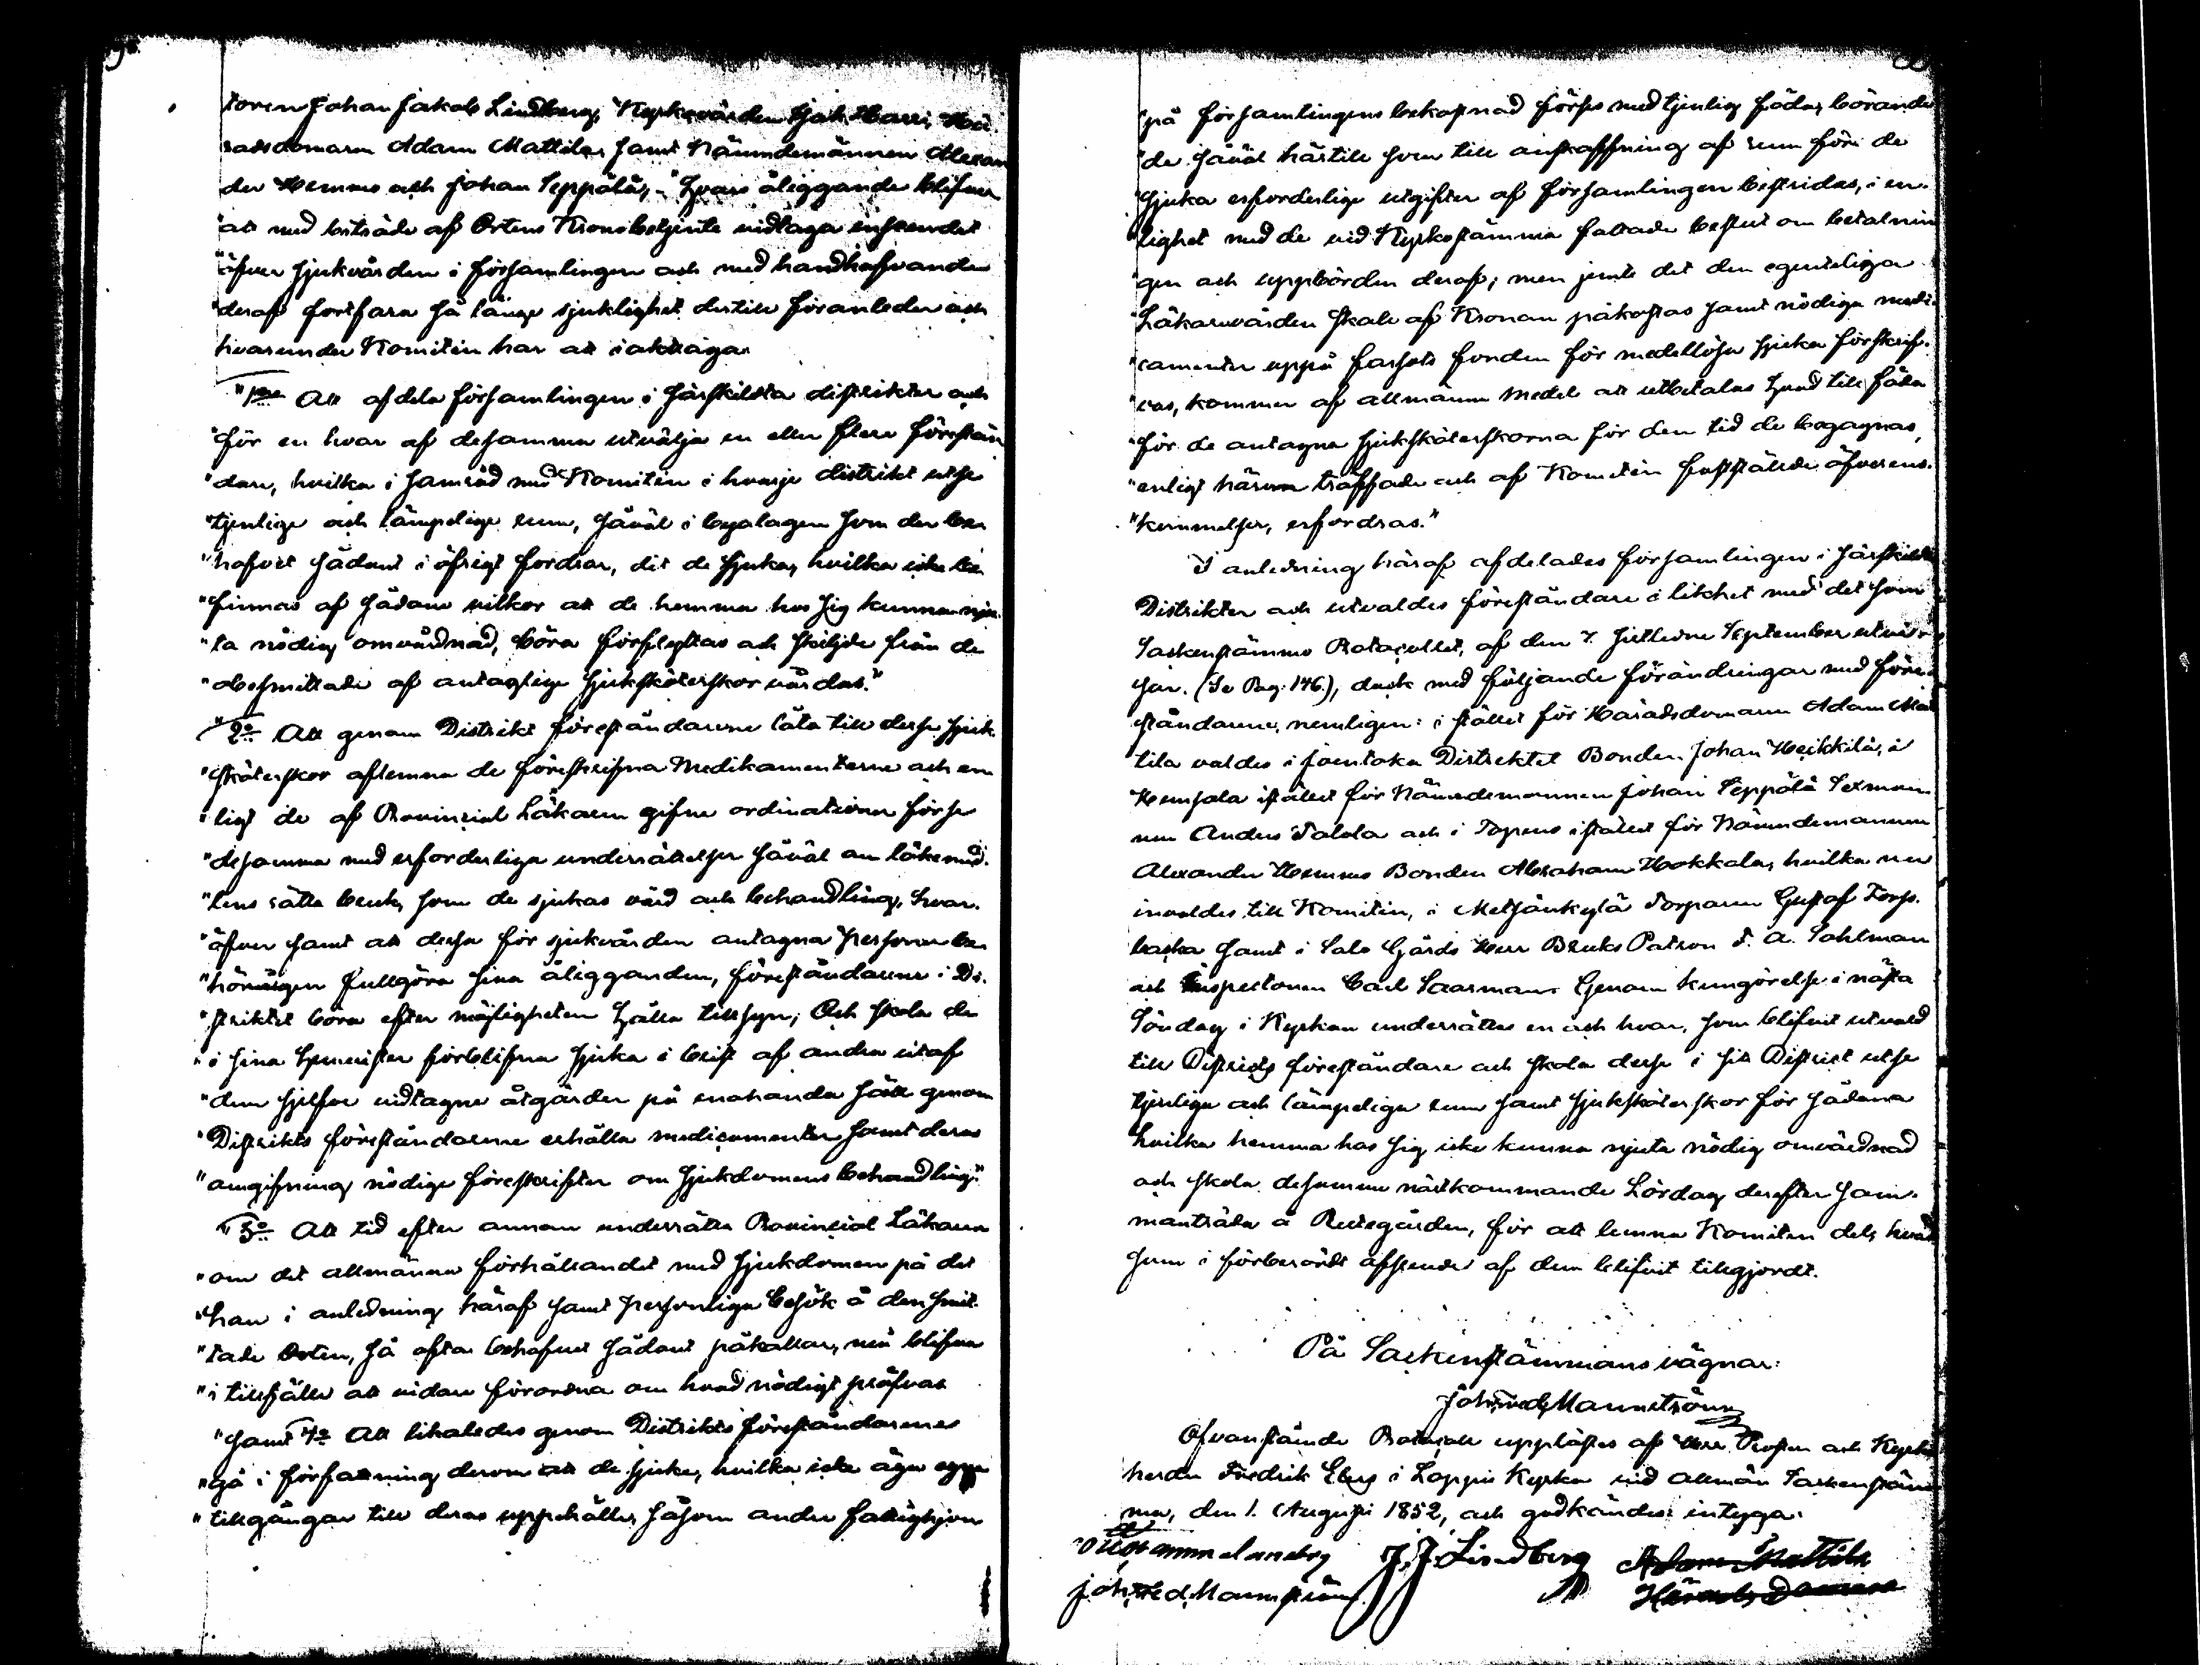 toren Johan Jakob Lindberg, Kyrkovärden Isak Harri, Hä-
radsdomarn Adam Mattila, samt Nämndemännen Alexan
der Hemmo och Johan Seppälä, "hvars åliggande blifver
"att med biträde af Ortens Kronobetjente vidtaga inseendet
"öfver sjukvården i församlingen och med handhafvandet
"deraf fortfara så länge sjuklighet dertill föranleder och
hvarunder Komitén har att iakttaga
"1mo Att afdela församlingen i särskildta distrikter och
"för en hvar af desamma utvälja en eller flere förestån
"dare, hvilka i samråd med Komitén i hvarje distrikt utse
"tjenlige och lämpelige rum, såväl i byalagen som der be-
"hofvet sådant i öfrigt fordrar, dit de sjuka, hvilka icke be-
"finnas af sådane vilkor att de hemma hos sig kunna nju-
"ta nödig omvårdnad, böra förflyttas och skiljde från de
"obesmittade af antaglige sjuksköterskor vårdas."
"2o Att genom Distrikt föreståndarene låta till desse sjuk-
"sköterskor aflemna de föreskrifna Medikamenterne och en-
"ligt de af Provincial Läkaren gifne ordinationer förse
"desamma med erforderliga underrättelser såväl om läkemed-
"lens rätta bruk, som de sjukas vård och behandling, hvar-
"öfver samt att desse för sjukvården antagna personer be-
"hörigen fullgöra sina åligganden, föreståndarene i Di-
"striktet böra efter möjligheten hålla tillsyn; Och skola de
"i sina hemvister förblifna sjuka i brist af andra utaf
"dem sjelfve vidtagne åtgärder på enahanda sätt genom
"Distrikts föreståndarene erhålla medicamenter samt deras
"omgifning nödige föreskrifter om sjukdomens behandling."
"3o Att tid efter annan underrätta Provincial Läkaren
"om det allmänna förhållandet med sjukdomen på det
"han i anledning häraf samt personliga besök å den smit-
"tade Orten, så ofta behofvet sådant påkallar, må blifva
"i tillfälle att vidare förordna om hvad nödigt pröfvas
"samt 4o Att likaledes genom Distrikts föreståndarene
"gå i författning derom att de sjuke, hvilka icke äga egne
"tillgångar till deras uppehälle, såsom andre fattighjon
"på församlingens bekostnad förses med tjenlig föda, börande
"de såväl härtill som till anskaffning af rum för de
"sjuka erforderlige utgifter af församlingen bestridas, i en-
"lighet med de vid Kyrkostämma fattade beslut om betalnin
"gen och uppbörden deraf; men jemte det den egenteliga
"Läkarevården skall af Kronan påkostas samt nödiga medi-
"camenter uppå farsots fonden för medellösa sjuka förskrif-
"vas, kommer af allmänna medel att utbetalas hvad till föda
"för de antagna sjuksköterskorna för den tid de begagnas,
"enligt härom träffade och af Komitén fastställde öfverens-
"kommelser, erfordras."
I anledning häraf afdelades församlingen i särskildta
Distrikter och utvaldes föreståndare i likhet med det som
Sockenstämmo Protocollet, af den 7. sistledne September utvi-
sar. (Se Pag: 146.), dock med följande förändringar med före-
ståndarene, nemligen: i stället för Häradsdomarn Adam Mat
tila valdes i Joentaka Distriktet Bonden Johan Heikkilä, i
Hunsala istället för Nämndemannen Johan Seppälä Sexman-
nen Anders Talola och i Topeno istället för Nämndemannen
Alexander Hemmo Bonden Abraham Hokkala, hvilka nu
invaldes till Komitén, i Metsänkylä Torparen Gustaf Torp-
backa samt i Salo Gårds Herr Bruks Patron F. A. Sohlman
och Inspectoren Carl Saarman. Genom kungörelse i nästa
Söndag i Kyrkan underrättas en och hvar, som blifvit utvald
till Districts föreståndare och skola desse i sitt District utse
tjenliga och lämpeliga rum samt sjuksköterskor för sådana
hvilka hemma hos sig icke kunna njuta nödig omvårdnad
och skola desamme nästkommande Lördag derefter sam-
manträda å Pretsgården, för att lemna Komitén del, hvad
som i förberörde afseende af dem blifvit tillgjordt.
På Sockenstämmans vägnar:
Joh: Fred: Mannström
Ofvanstående Protocoll upplästes af Herr Prosten och Kyrko
herden Fredrik Eberg i Loppis Kyrka vid allmän Sockenstäm
ma, den 1. Augusti 1852, och godkändes intyga.
J. J. Lindberg Adam Mattila
Joh: Fred: Mannström Härads Domare